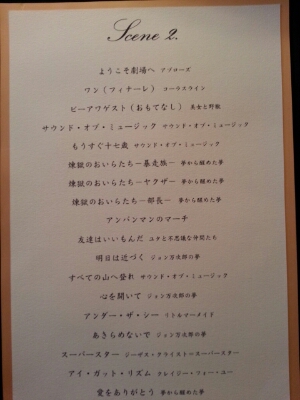 Scene 2.
ようこそ劇場へ アプローズ
ワン(フィナーレ) コーラスライン
ビーアワゲスト(おもてなし) 美女と野獣
サウンド・オブ・ミュージック サウンド・オブ・ミュージック
もうすぐ十七歳 サウンド・オブ・ミュージック
煉獄のおいらたち－暴走族－ 夢から醒めた夢
煉獄のおいらたち－ヤクザ－ 夢から醒めた夢
煉獄のおいらたち－部長－ 夢から醒めた夢
アンパンマンのマーチ
友達はいいもんだ ユタと不思議な仲間たち
明日は近づく ジョン万次郎の夢
すべての山へ登れ サウンド・オブ・ミュージック
心を開いて ジョン万次郎の夢
アンダー・ザ・シー リトルマーメイド
あきらめないで ジョン万次郎の夢
スーパースター ジーザス・クライスト＝スーパースター
アイ・ガット・リズム クレイジー・フォー・ユー
愛をありがとう 夢から醒めた夢